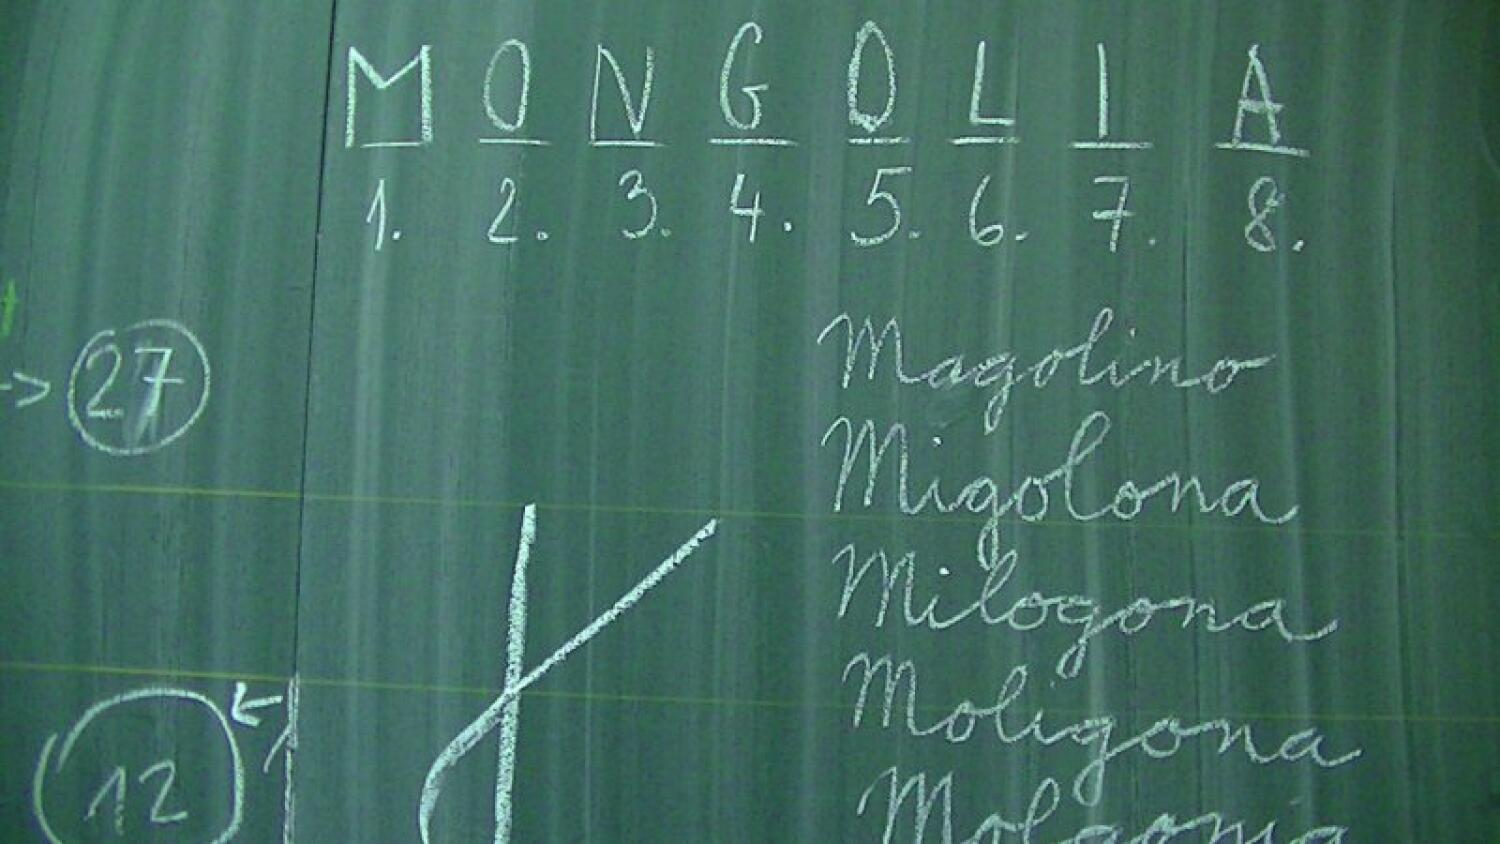 M O N G O L I A
1. 2. 3. 4. 5. 6. 7. 8.
Magolino
-> 27
Migolona
Milogona
Moligona
12
Molgonia